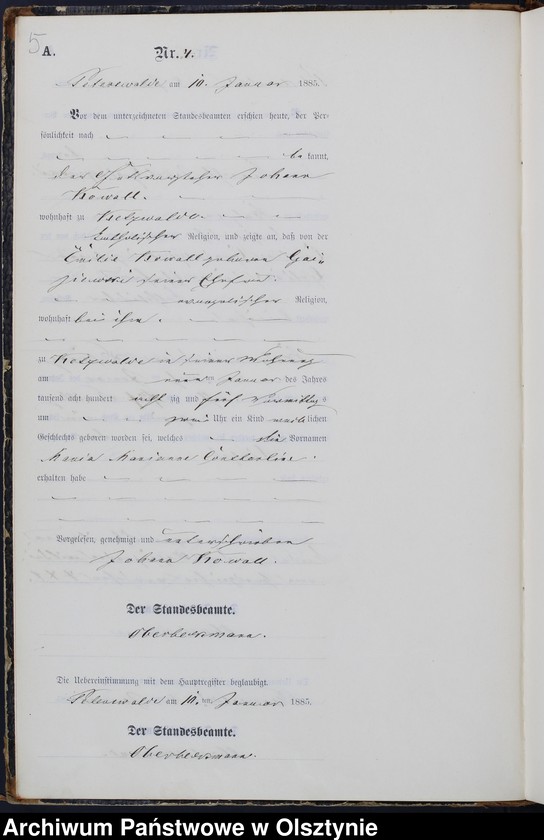 5
A. Nr. 4.
Peterswalde am 10. Januar 1885.
Vor dem unterzeichneten Standesbeamten erschien heute, der Per-
sönlichkeit nach
bekannt,
der Johann
Kowall.
wohnhaft zu
katholischer Religion, und zeigte an, daß von der
Emilie Kowall geborene
seiner Ehefrau
evangelischer Religion,
wohnhaft bei ihm.
zu in seiner Wohnung
am Januar des Jahres
tausend acht hundert achtzig und fünf Vormittags
um zwei Uhr ein Kind weiblichen
Geschlechts geboren worden sei, welches die Vornamen
Maria Marianne
erhalten habe
Vorgelesen, genehmigt und unterschrieben
Johann Kowall.
Der Standesbeamte.
Die Uebereinstimmung mit dem Hauptregister beglaubigt.
Peterswalde am 10. ten Januar 1885.
Der Standesbeamte.
Archiwum Państwowe w Olsztynie